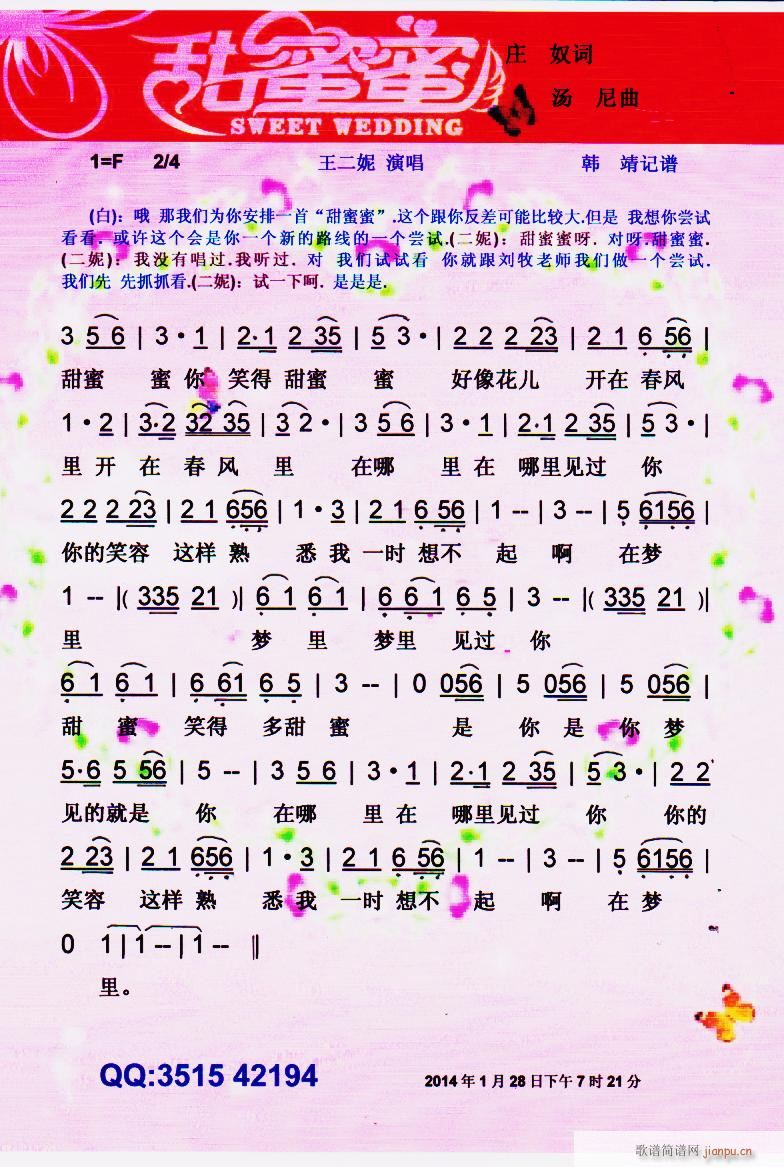 甜蜜蜜
SWEET WEDDING
庄 奴词
汤 尼曲
1=F 2/4 王二妮 演唱 韩 靖记谱
(白): 哦 那我们为你安排一首“甜蜜蜜”.这个跟你反差可能比较大.但是 我想你尝试
看看. 或许这个会是你一个新的路线的一个尝试.(二妮): 甜蜜蜜呀. 对呀.甜蜜蜜.
(二妮): 我没有唱过.我听过. 对 我们试试看 你就跟刘牧老师我们做一个尝试.
我们先 先抓抓看.(二妮): 试一下呵. 是是是.
3 5 6 | 3 · 1 | 2·1 2 35 | 5 3 · | 2 2 2 23 | 2 1 6 56 |
甜蜜 蜜 你 笑得 甜蜜 蜜 好像花儿 开在 春风
1 · 2 | 3·2 32 35 | 3 2 · | 3 5 6 | 3 · 1 | 2·1 2 35 | 5 3 · |
里 开 在 春 风 里 在哪 里 在 哪里见过 你
2 2 2 23 | 2 1 656 | 1 · 3 | 2 1 6 56 | 1 -- | 3 -- | 5 6156 |
你的笑容 这样 熟 悉 我 一时 想不 起 啊 在梦
1 -- |( 335 21 )| 6 1 6 1 | 6 6 1 6 5 | 3 -- |( 335 21 )|
里 梦 里 梦里 见过 你
6 1 6 1 | 6 61 6 5 | 3 -- | 0 056 | 5 056 | 5 056 |
甜 蜜 笑得 多甜 蜜 是 你 是 你 梦
5·6 5 56 | 5 -- | 3 5 6 | 3 · 1 | 2·1 2 35 | 5 3 · | 2 2
见的就是 你 在哪 里 在 哪里见过 你 你的
2 23 | 2 1 656 | 1 · 3 | 2 1 6 56 | 1 -- | 3 -- | 5 6156 |
笑容 这样 熟 悉 我 一时 想不 起 啊 在 梦
0 1 | 1 -- | 1 -- ‖
里。
QQ:3515 42194
2014 年 1 月 28 日下午 7 时 21 分
歌谱简谱网 jianpu.cn